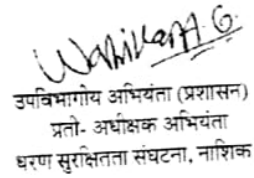 उपविभागीय अभियंता (प्रशासन)
प्रतो- अधीक्षक अभियंता
धरण सुरक्षितता संघटना, नाशिक